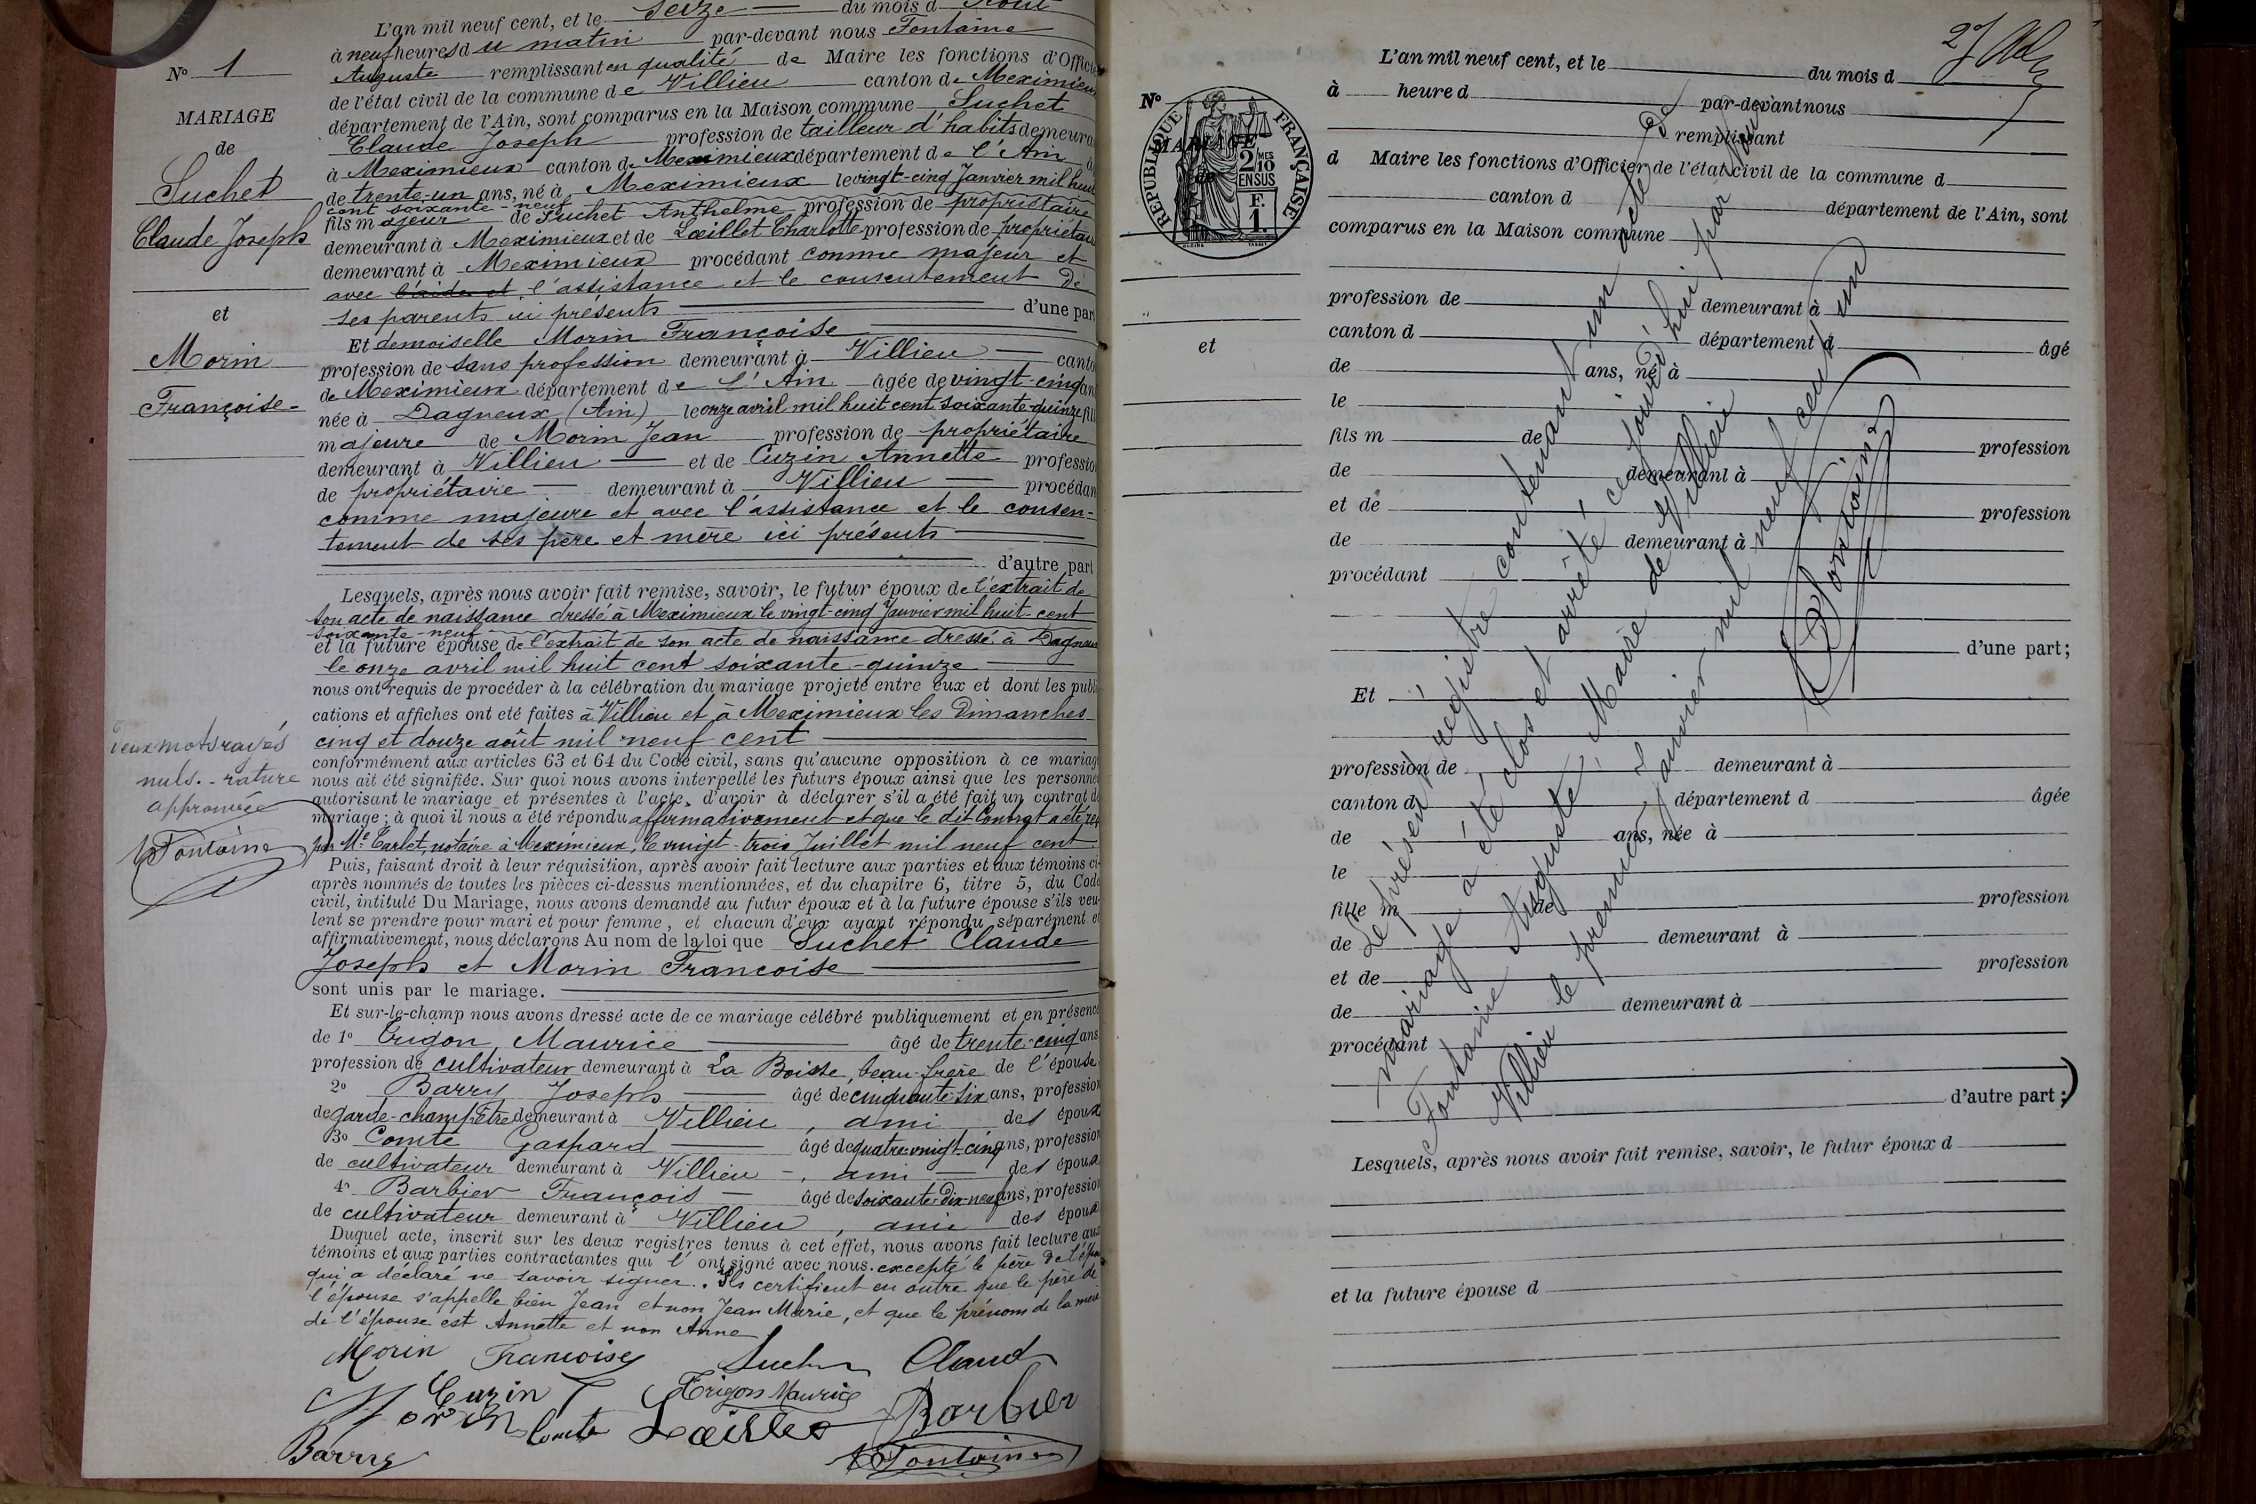 L'an mil neuf cent, et le seize du mois d Août
à neuf heures du matin par-devant nous Fontaine
Auguste remplissant en qualité de Maire les fonctions d'Offici
de l'état civil de la commune de Villieu canton de Meximieux
département de l'Ain, sont comparus en la Maison commune Suchet
Claude Joseph profession de tailleur d'habits demeura
à Meximieux canton de Meximieux département de l'Ain
de trente-un ans, né à Meximieux le vingt-cinq Janvier mil huit
cent soixante neuf
fils majeur de Suchet Anthelme profession de propriétaire
demeurant à Meximieux et de Lœillet Charlotte profession de propriétaire
demeurant à Meximieux procédant comme majeur et
avec l'aide et l'assistance et le consentement de
ses parents ici présents d'une part
Et demoiselle Morin Françoise
profession de sans profession demeurant à Villieu canto
de Meximieux département de l'Ain âgée de vingt-cinq ans
née à Dagneux (Ain) le onze avril mil huit cent soixante-quinze fil
majeure de Morin Jean profession de propriétaire
demeurant à Villieu et de Cuzin Annette professio
de propriétaire demeurant à Villieu procédan
comme majeure et avec l'assistance et le consen-
tement de ses père et mère ici présents
d'autre part
Lesquels, après nous avoir fait remise, savoir, le futur époux de l'extrait de
son acte de naissance dressé à Meximieux le vingt-cinq Janvier mil huit cent
soixante-neuf
et la future épouse de l'extrait de son acte de naissance dressé à Dagneux
le onze avril mil huit cent soixante-quinze
nous ont requis de procéder à la célébration du mariage projeté entre eux et dont les publi
cations et affiches ont été faites à Villieu et à Meximieux les Dimanches
cinq et douze août mil neuf cent
conformément aux articles 63 et 64 du Code civil, sans qu'aucune opposition à ce mariag
nous ait été signifiée. Sur quoi nous avons interpellé les futurs époux ainsi que les personne
autorisant le mariage et présentes à l'acte, d'avoir à déclarer s'il a été fait un contrat de
mariage ; à quoi il nous a été répondu affirmativement et que le dit Contrat a été reçu
par Me Carlet, notaire à Meximieux, le vingt-trois Juillet mil neuf cent
Puis, faisant droit à leur réquisition, après avoir fait lecture aux parties et aux témoins ci-
après nommés de toutes les pièces ci-dessus mentionnées, et du chapitre 6, titre 5, du Code
civil, intitulé Du Mariage, nous avons demandé au futur époux et à la future épouse s'ils veu-
lent se prendre pour mari et pour femme, et chacun d'eux ayant répondu séparément et
affirmativement, nous déclarons Au nom de la loi que Suchet Claude
Joseph et Morin Françoise
sont unis par le mariage.
Et sur-le-champ nous avons dressé acte de ce mariage célébré publiquement et en présence
de 1° Trigon, Maurice âgé de trente-cinq ans
profession de cultivateur demeurant à La Boisse, beau-frère de l'épouse
2° Barry Joseph âgé de cinquante six ans, profession
de garde-champêtre demeurant à Villieu, ami des époux
3° Comte Gaspard âgé de quatre-vingt-cinq ans, profession
de cultivateur demeurant à Villieu, ami des époux
4° Barbier François âgé de soixante-dix-neuf ans, profession
de cultivateur demeurant à Villieu, ami des époux
Duquel acte, inscrit sur les deux registres tenus à cet effet, nous avons fait lecture aux
témoins et aux parties contractantes qui l'ont signé avec nous. excepté le père de l'époux
qui a déclaré ne savoir signer. Ils certifient en outre que le père de
l'épouse s'appelle bien Jean et non Jean Marie, et que le prénom de la mère
de l'épouse est Annette et non Anne
Morin Françoise Suchet Claud
Cuzin Trigon Maurice
Morin Comte Lœillet Barbier
Barry Fontaine
N° 1
MARIAGE
de
Suchet
Claude Joseph
et
Morin
Françoise
Deux mots rayés
nuls. - rature
approuvée
Fontaine
N°
MARIAGE
de
et
RÉPUBLIQUE FRANÇAISE
2 MES
10
EN SUS
F.
1.
L'an mil neuf cent, et le du mois d
à heure d par-devant nous
remplissant
d Maire les fonctions d'Officier de l'état civil de la commune d
canton d département de l'Ain, sont
comparus en la Maison commune
profession de demeurant à
canton d département d âgé
de ans, né à
le
fils m de profession
de demeurant à
et de profession
de demeurant à
procédant
d'une part ;
Et
profession de demeurant à
canton d département d âgée
de ans, née à
le
fille m de profession
de demeurant à
et de profession
de demeurant à
procédant
d'autre part ;
Lesquels, après nous avoir fait remise, savoir, le futur époux d
et la future épouse d
Le présent registre contenant un acte de
mariage a été clos et arrêté, ce jourd'hui par nous
Fontaine Auguste, Maire de Villieu
Villieu le premier Janvier mil neuf cent un
Fontaine